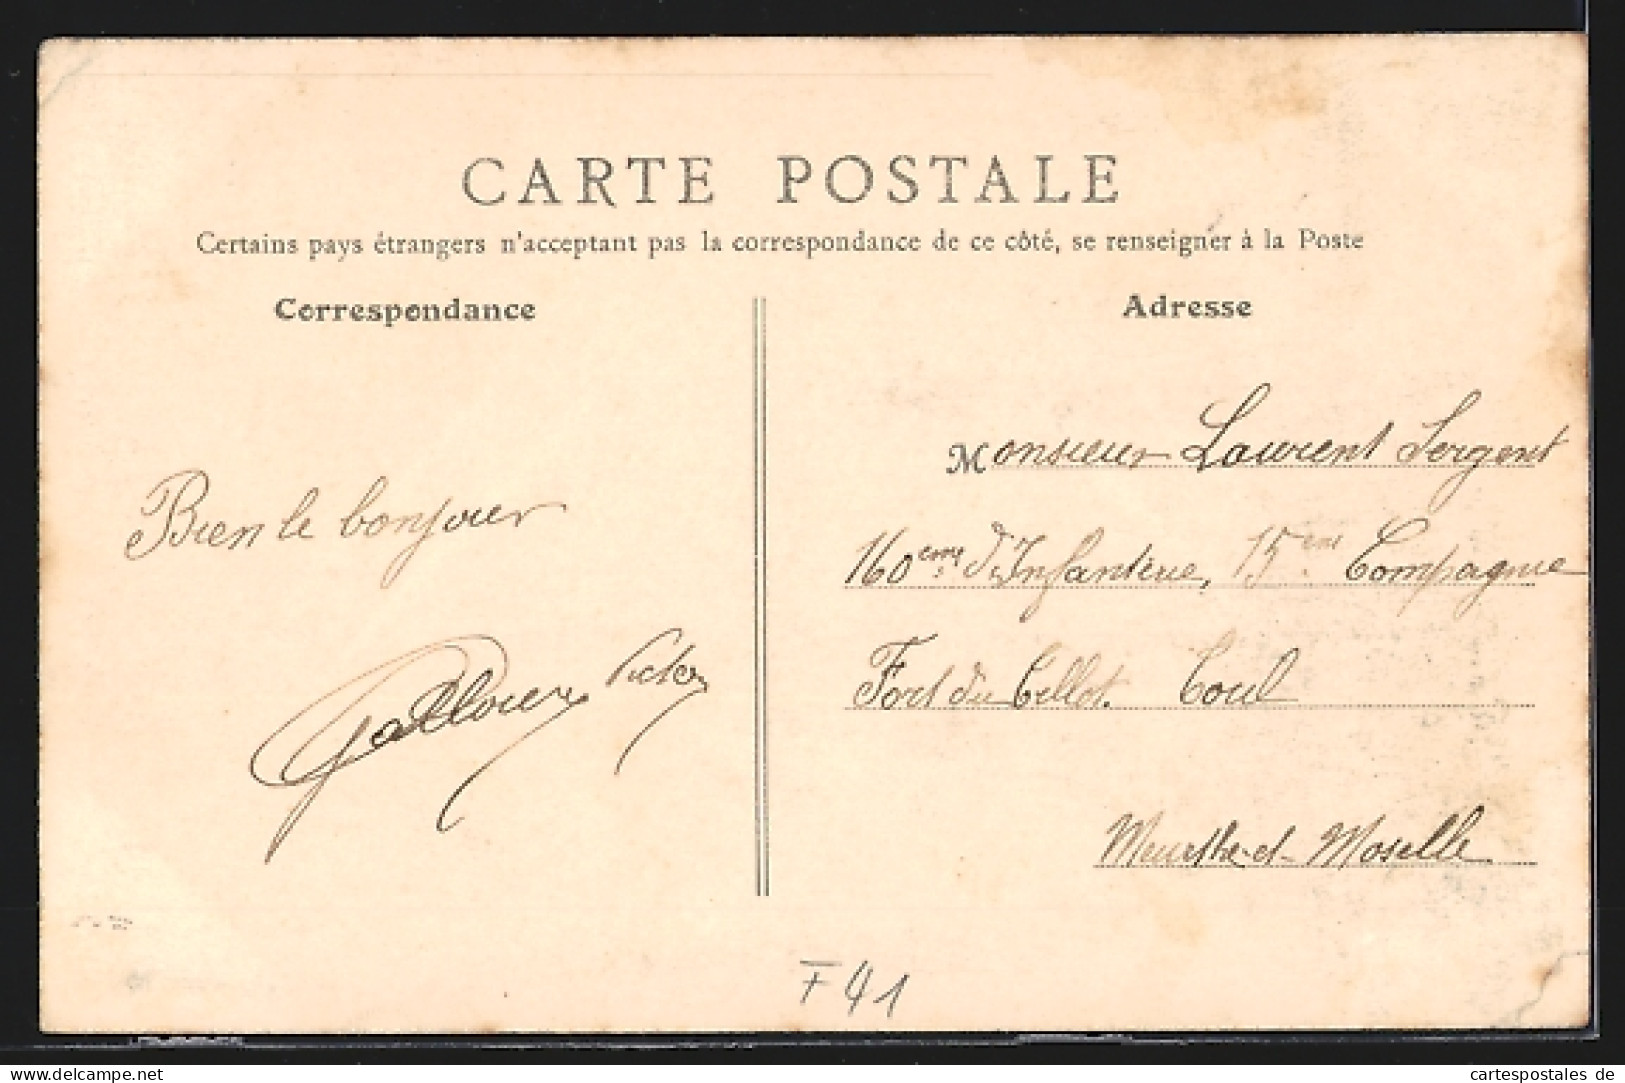 CARTE POSTALE
Certains pays étrangers n'acceptant pas la correspondance de ce côté, se renseigner à la Poste
Correspondance
Adresse
Bien le bonjour
Victor
Monsieur Laurent Sergent
160eme d'Infanterie, 15eme Compagnie
Fort du Tillot. Toul
Meurthe-et-Moselle
F 41
www.delcampe.net
cartespostales de